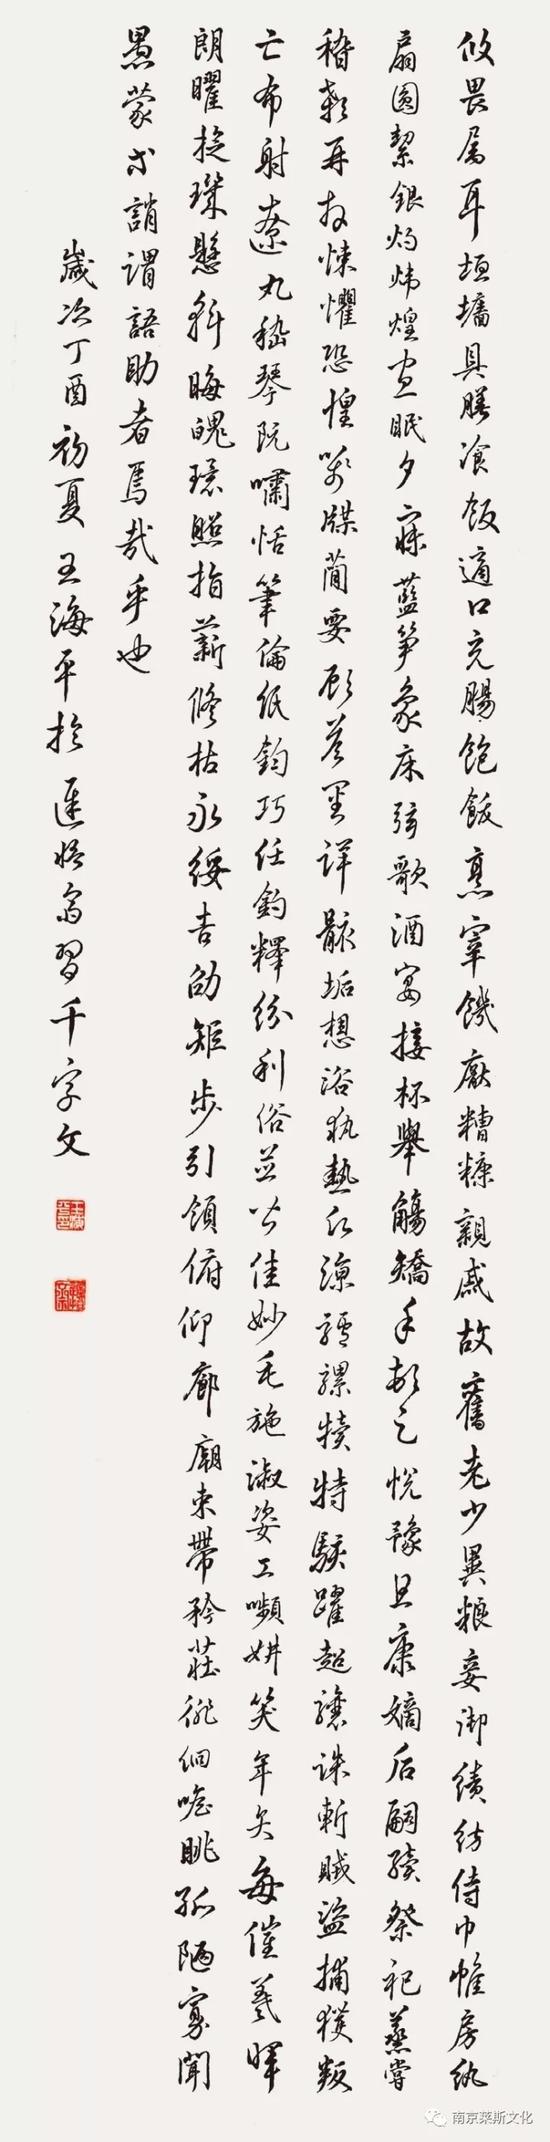 攸畏属耳垣墻具膳飡飯適口充腸飽飫烹宰饑厭糟糠親戚故舊老少異粮妾御績紡侍巾帷房紈
扇圓絜銀灼煒煌晝眠夕寐藍笋象床弦歌酒宴接杯舉觴矯手頓足悅豫且康嫡后嗣續祭祀蒸嘗
稽顙再拜悚懼恐惶箋牒簡要顧答審詳骸垢想浴執熱願涼驢騾犢特駭躍超驤誅斬賊盜捕獲叛
亡布射遼丸嵇琴阮嘯恬筆倫紙鈞巧任釣釋紛利俗並皆佳妙毛施淑姿工嚬妍笑年矢每催羲暉
朗曜旋璣懸斡晦魄環照指薪修祜永綏吉劭矩步引領俯仰廊廟束帶矜莊徘徊瞻眺孤陋寡聞
愚蒙等誚謂語助者焉哉乎也
歲次丁酉初夏王海平於習千字文
南京莱斯文化